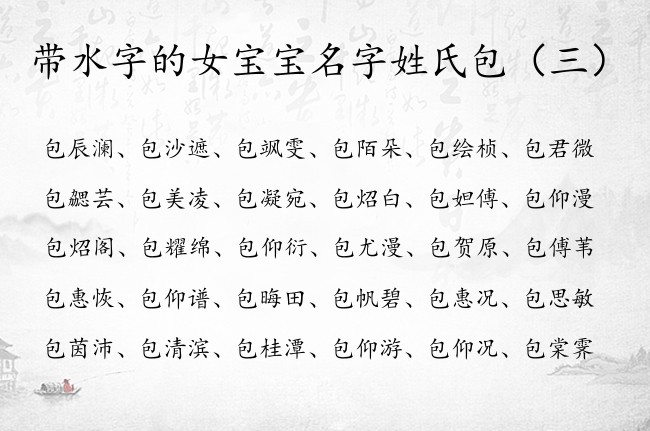 带水字的女宝宝名字姓氏包（三）
包辰澜、包沙遮、包飒雯、包陌朵、包绘桢、包君微
包勰芸、包美凌、包凝宛、包炤白、包妲傅、包仰漫
包炤阁、包耀绵、包仰衍、包尤漫、包贺原、包傅苇
包惠恢、包仰谱、包晦田、包帆碧、包惠况、包思敏
包茵沛、包清滨、包桂潭、包仰游、包仰况、包棠霁